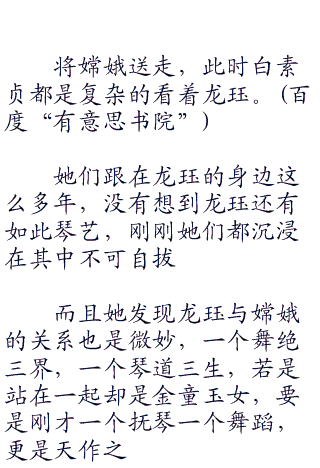 将嫦娥送走，此时白素
贞都是复杂的看着龙珏。（百
度“有意思书院”）
她们跟在龙珏的身边这
么多年，没有想到龙珏还有
如此琴艺，刚刚她们都沉浸
在其中不可自拔
而且她发现龙珏与嫦娥
的关系也是微妙，一个舞绝
三界，一个琴道三生，若是
站在一起却是金童玉女，要
是刚才一个抚琴一个舞蹈，
更是天作之